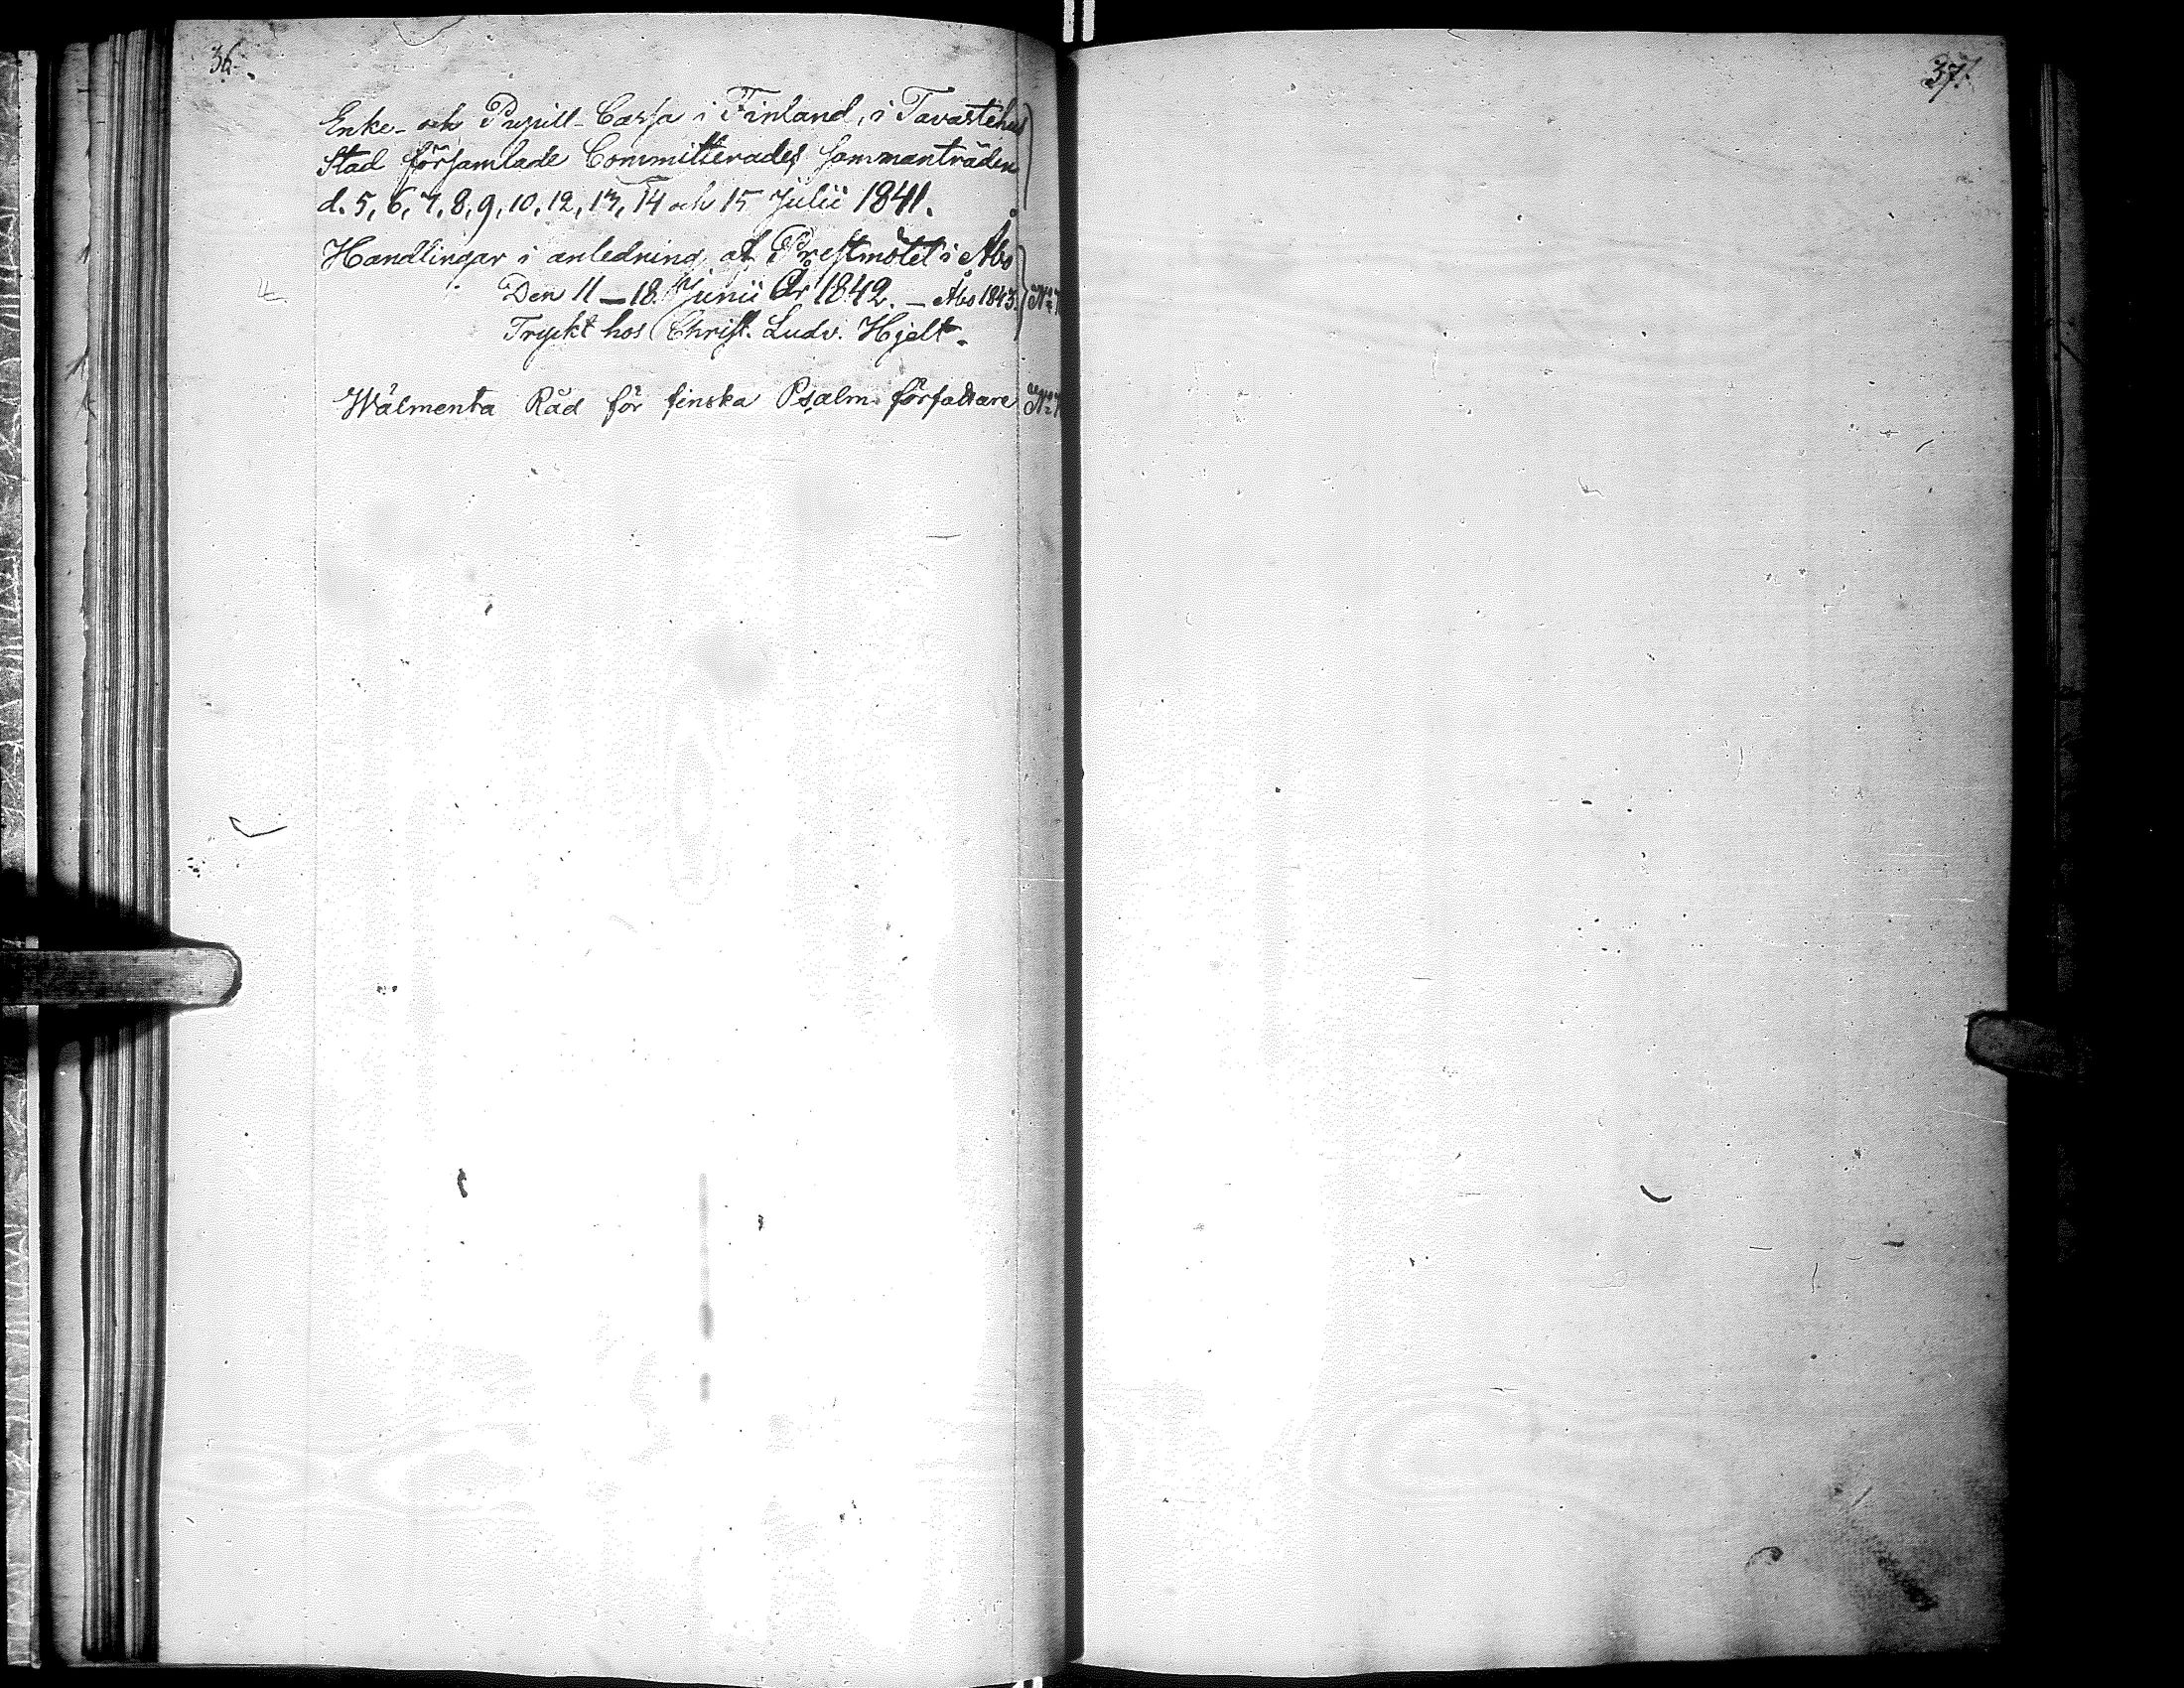 36.
Enke- och Pupill-Cassa i Finland, i Tavastehus
Stad församlade Committerades sammanträden
d. 5, 6, 7, 8, 9, 10, 12, 13, 14 och 15 Julii 1841.
Handlingar i anledning af Prestmötet i Åbo
Den 11–18 Junii År 1842. – Åbo 1843.
Tryckt hos Christ. Ludv. Hjelt.
Wälmenta Råd för finska Psalm författare
37.